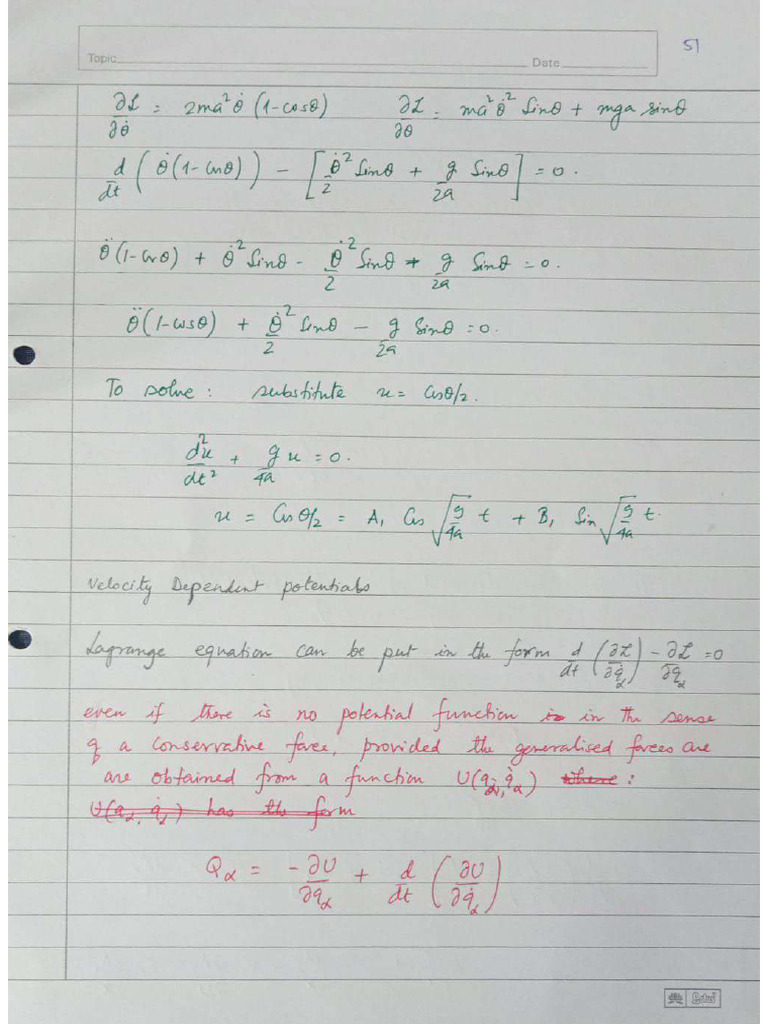 51
Topic Date
∂L/∂θ̇ = 2ma²θ̇ (1-cosθ) ∂L/∂θ = ma²θ̇² Sinθ + mga sinθ
d/dt ( θ̇(1-Cosθ) ) - [ θ̇²/2 Sinθ + g/2a Sinθ ] = 0.
θ̈(1-Cosθ) + θ̇² Sinθ - θ̇²/2 Sinθ - g/2a Sinθ = 0.
θ̈(1-cosθ) + θ̇²/2 Sinθ - g/2a Sinθ = 0.
To solve: substitute u = Cosθ/2.
d²u/dt² + g/4a u = 0.
u = Cosθ/2 = A₁ Cos √(g/4a) t + B₁ Sin √(g/4a) t.
Velocity Dependent potentials
Lagrange equation can be put in the form d/dt (∂L/∂q̇α) - ∂L/∂qα = 0
even if there is no potential function is in the sense
of a conservative force, provided the generalised forces are
are obtained from a function U(qα, q̇α) where :
U(qα, q̇α) has the form
Qα = -∂U/∂qα + d/dt (∂U/∂q̇α)